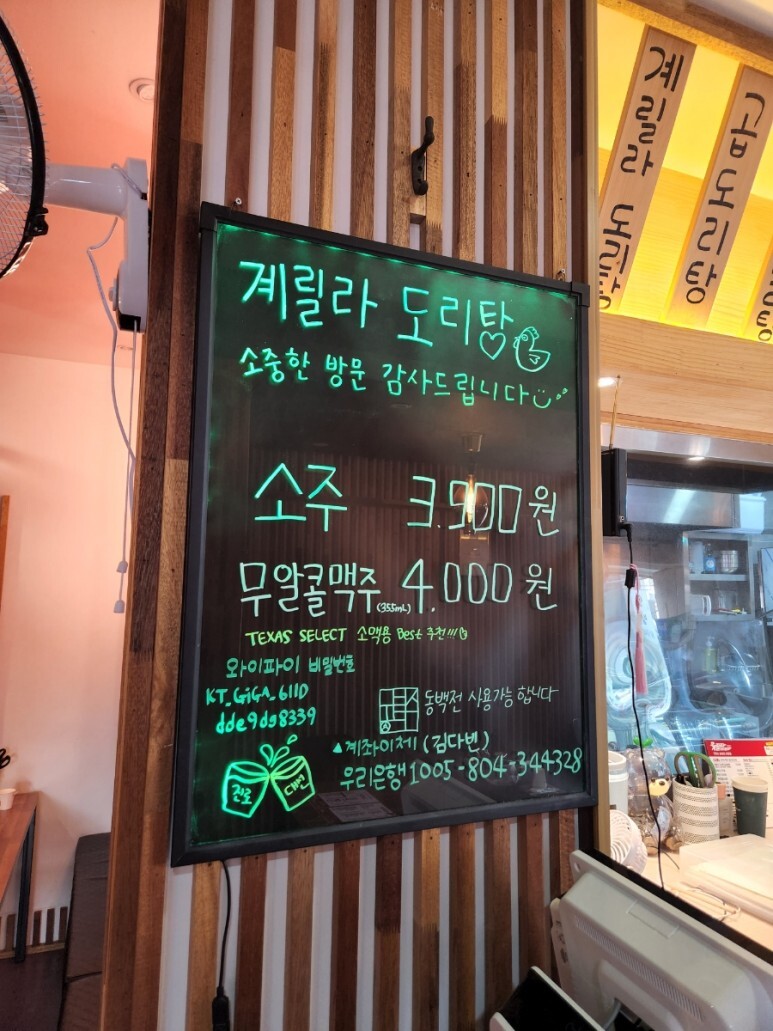 계릴라 도리탕
소중한 방문 감사드립니다
소주 3.900원
무알콜맥주(355mL) 4.000원
TEXAS SELECT 소맥용 Best 추천!!!
와이파이 비밀번호
KT_GiGA_611D
dde9dg8339
동백전 사용가능 합니다
▲계좌이체 (김다빈)
우리은행 1005-804-344328
진로
대선
계릴라 도리탕
곱도리탕